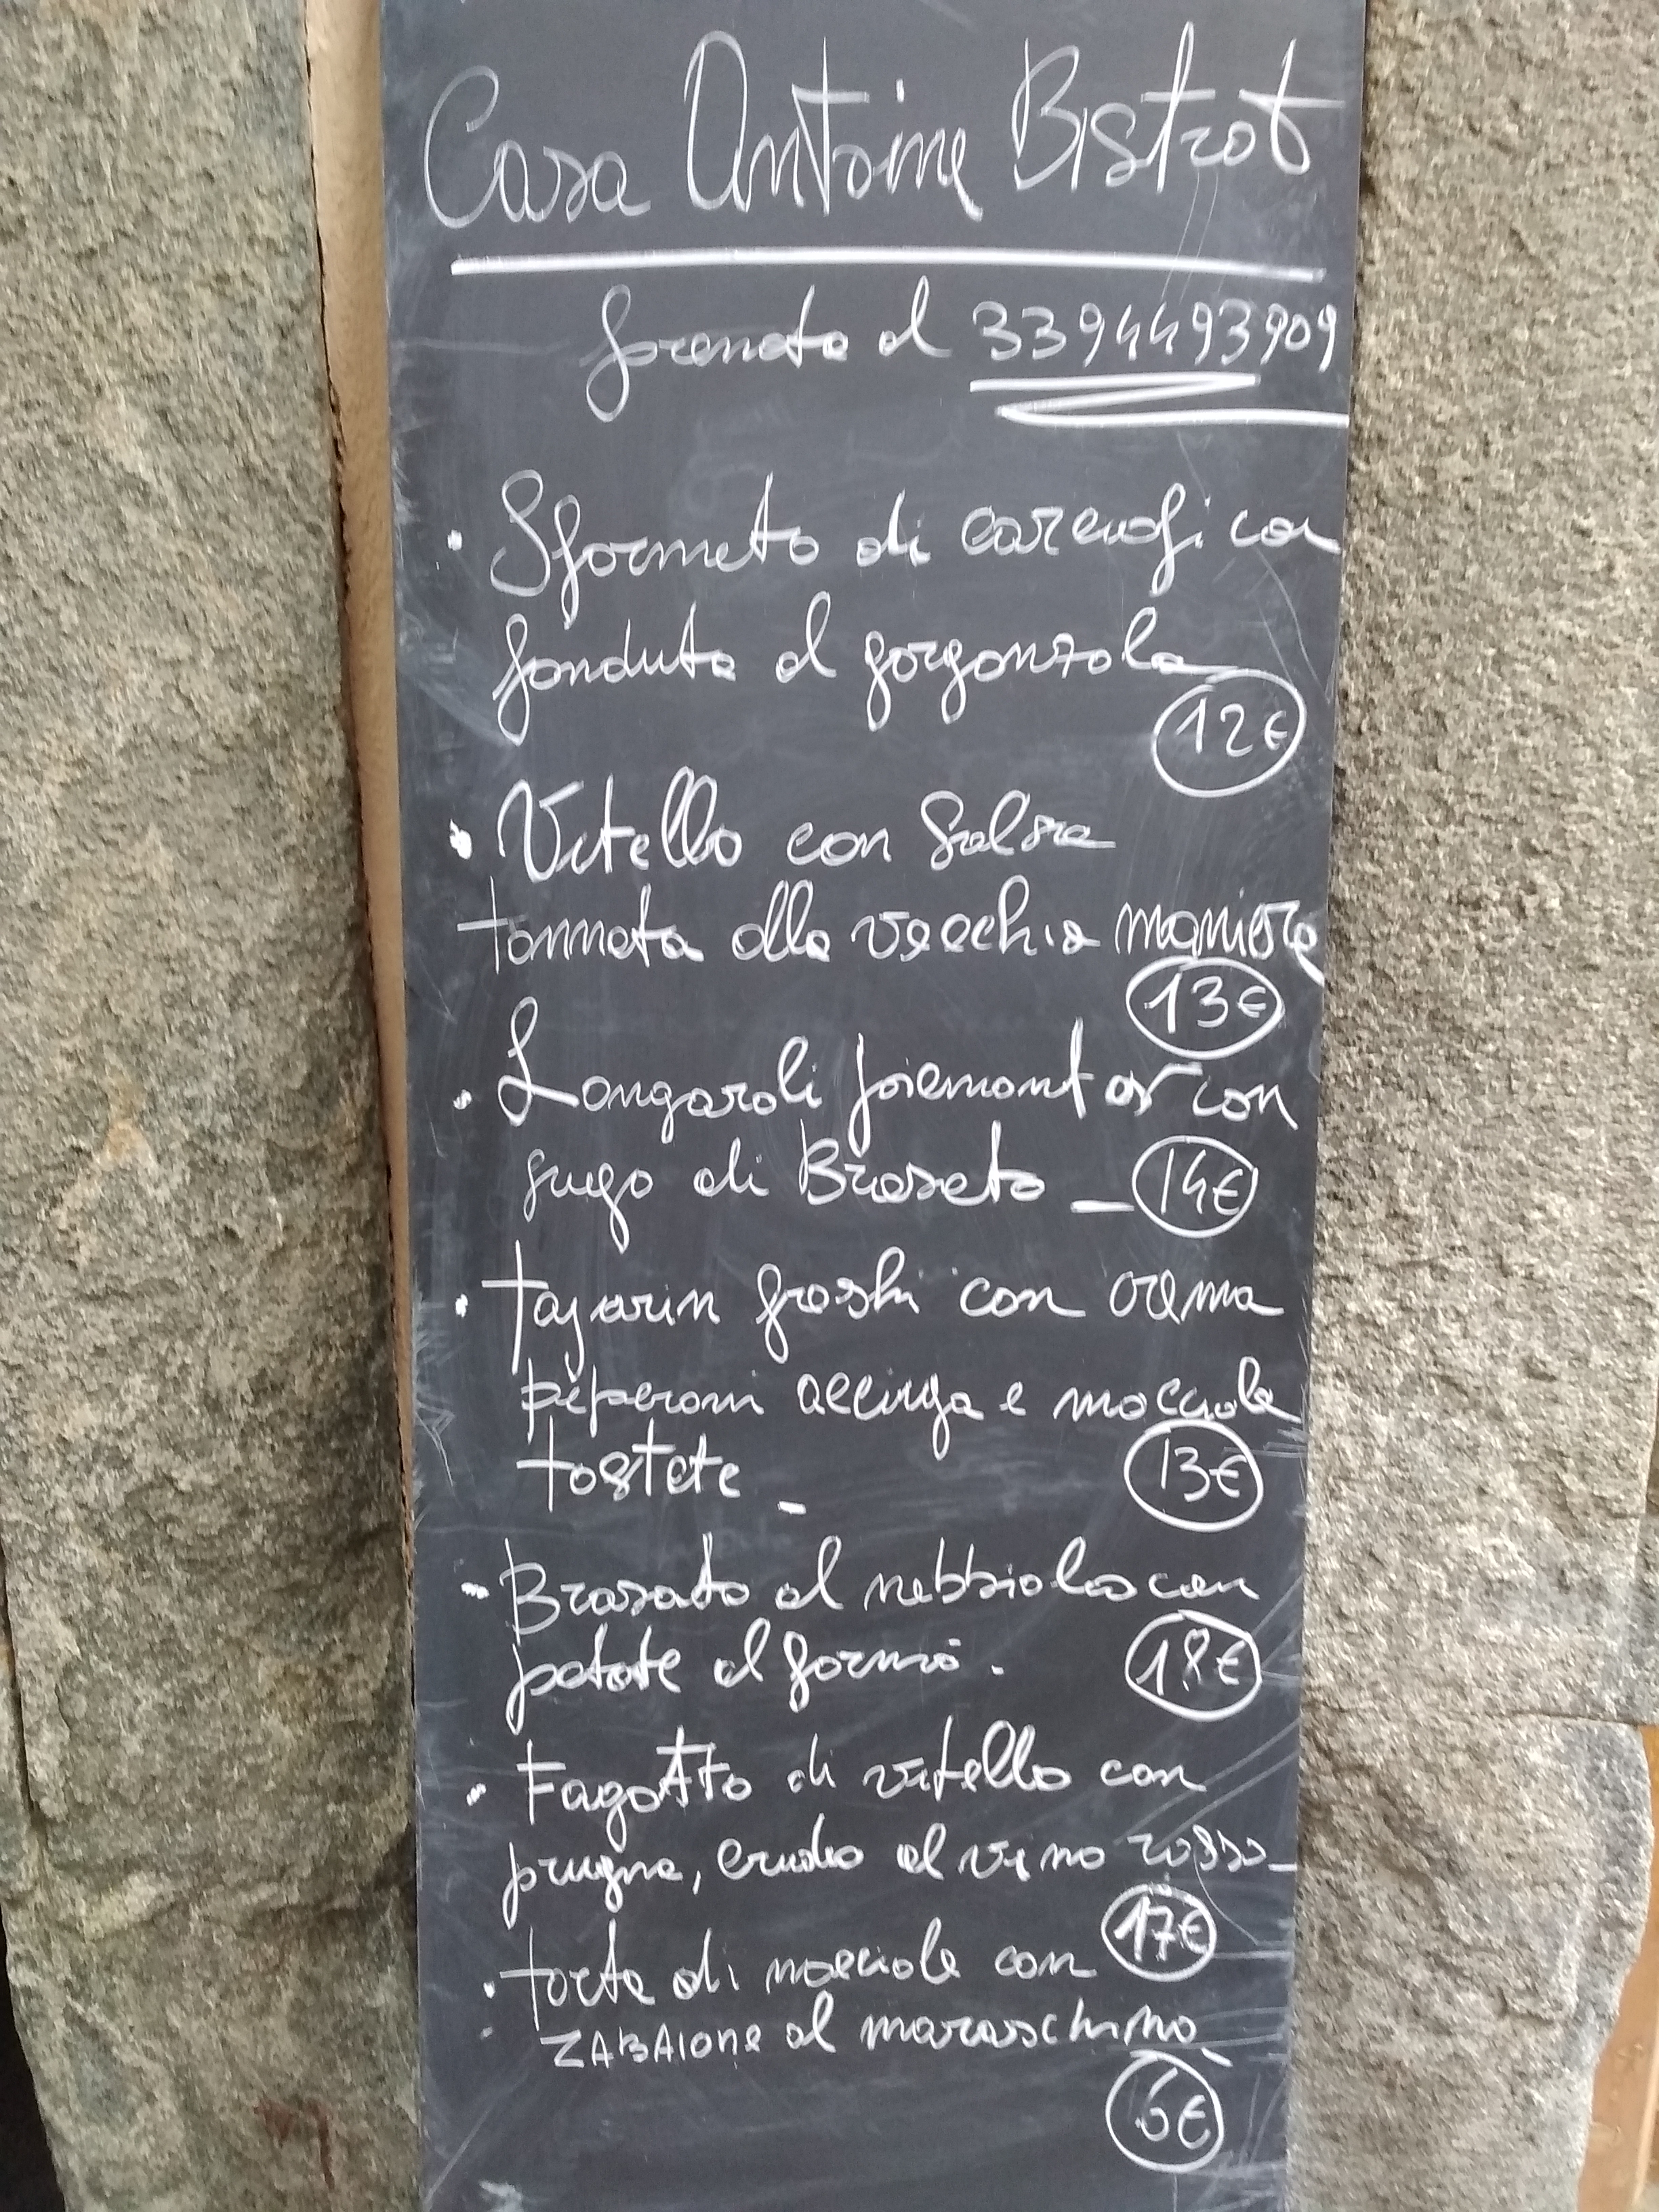 Casa Antoine Bistrot
prenota al 3394493909
• Sformato di carciofi con
fonduta al gorgonzola
12€
• Vitello con salsa
tonnata alla vecchia maniera
13€
• Langaroli piemontesi con
sugo di Brasato – 14€
• tajarin freschi con crema
peperoni acciuga e nocciole
tostate – 13€
- Brasato al nebbiolo con
patate al forno. 18€
- Fagotto di vitello con
prugne, crudo al vino rosso –
17€
• torta di nocciole con
ZABAIONE al maraschino
6€